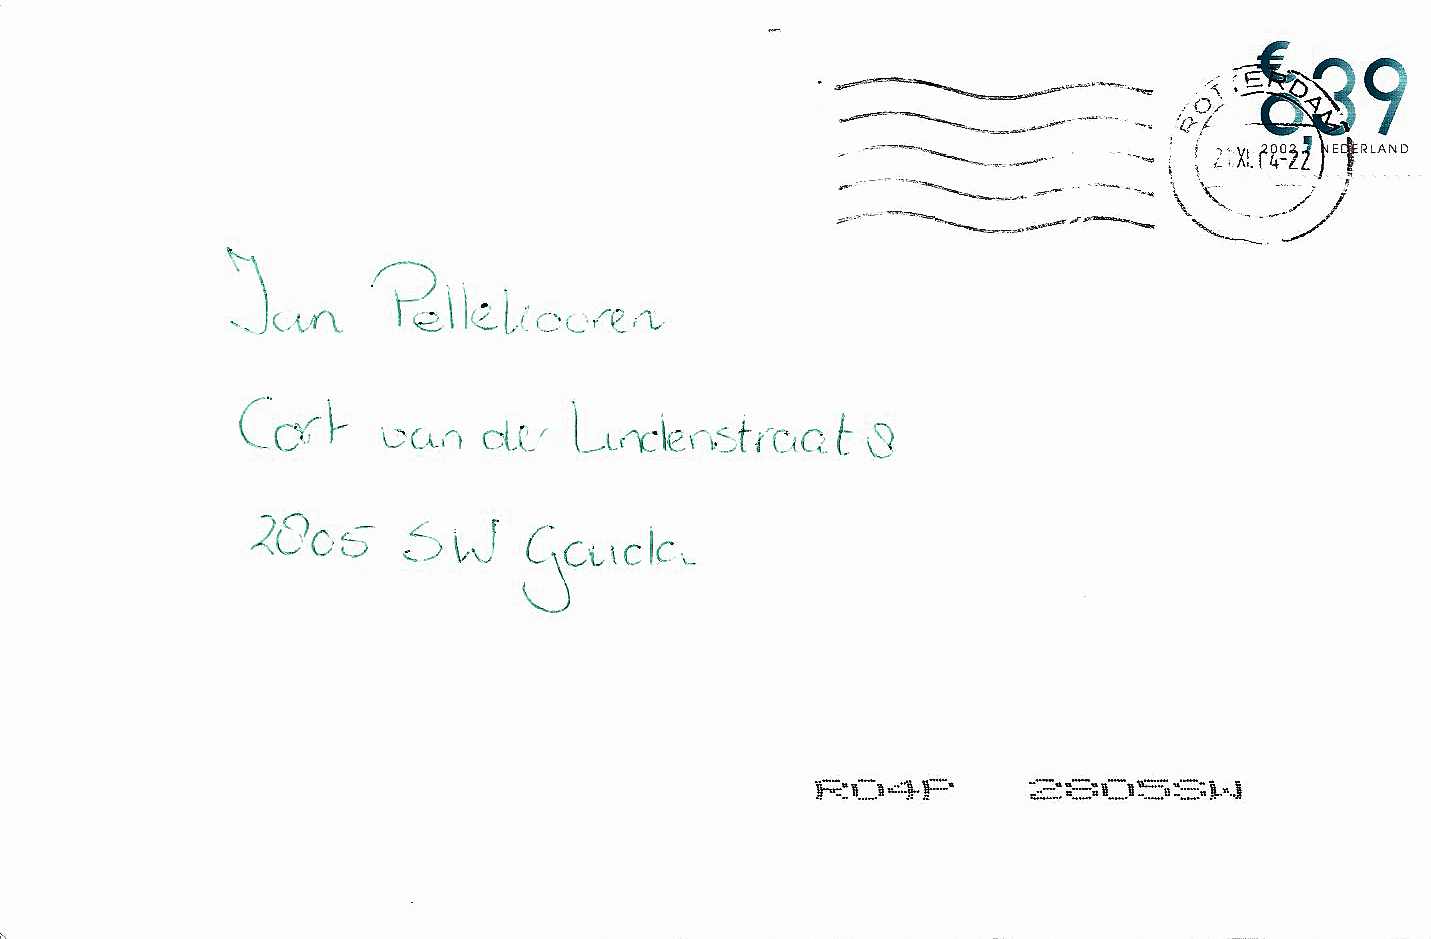 €0,39
ROTTERDAM
2002 NEDERLAND
XI. 04-22
Jan Pellekooren
Cort van der Lindenstraat 8
2805 SW Gouda
R04P 2805SW